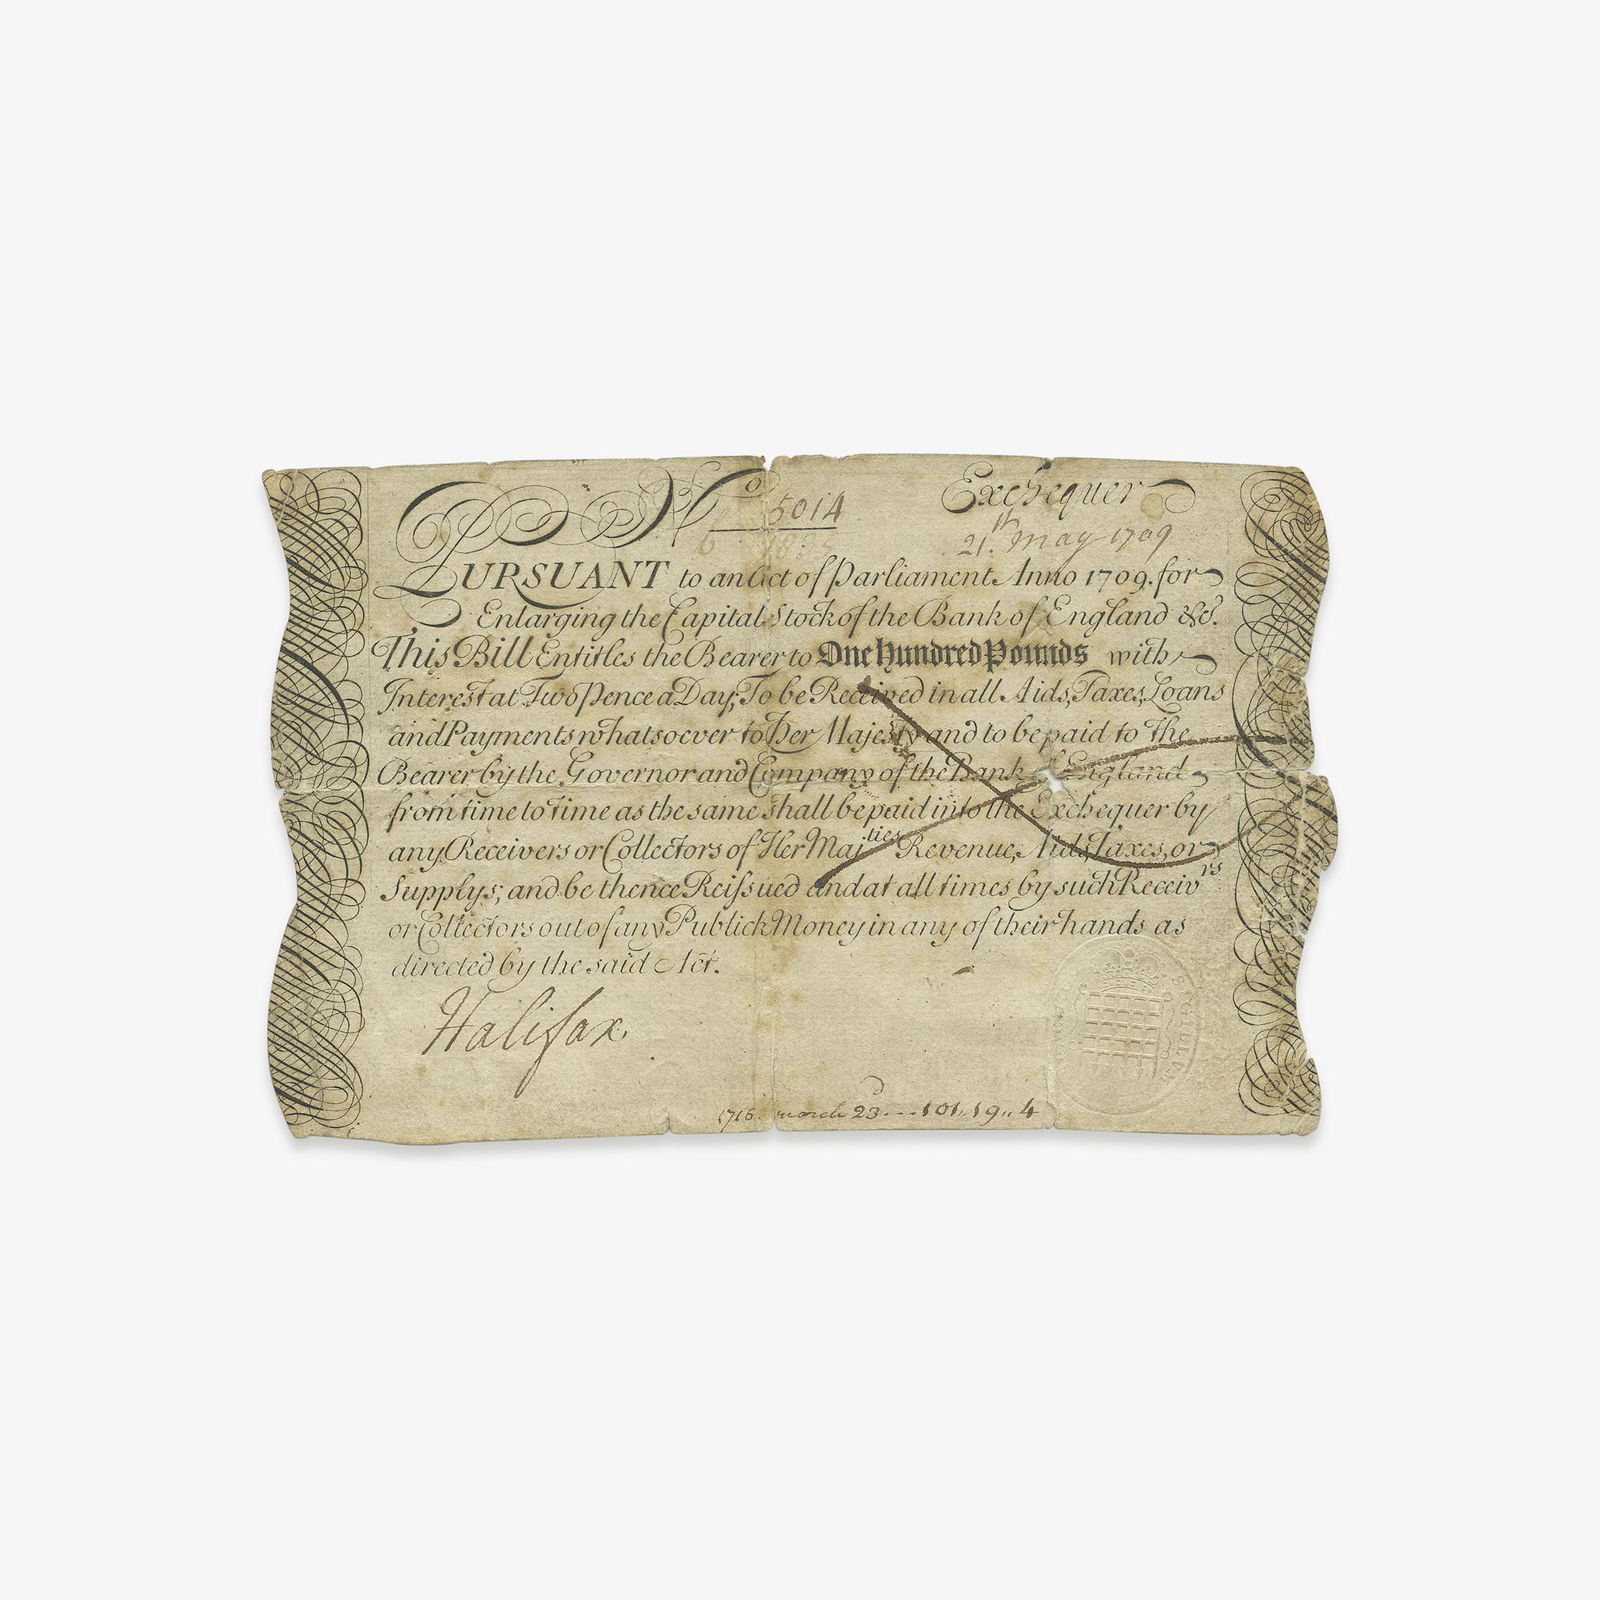 No 5014 Exchequer
21.th May 1709
PURSUANT to an Act of Parliament Anno 1709. for
Enlarging the Capital Stock of the Bank of England &c.
This Bill Entitles the Bearer to One Hundred Pounds with
Interest at Two Pence a Day, To be Received in all Aids, Taxes, Loans
and Payments whatsoever to Her Majesty and to be paid to the
Bearer by the Governor and Company of the Bank of England
from time to time as the same shall be paid into the Exchequer by
any Receivers or Collectors of Her Maj.ties Revenue, Aids, Taxes, or
Supplys; and be thence Reissued and at all times by such Receiv.rs
or Collectors out of any Publick Money in any of their hands as
directed by the said Act.
Halifax
SIGILLUM
1716. march 23d --- 101 " 19 " 4